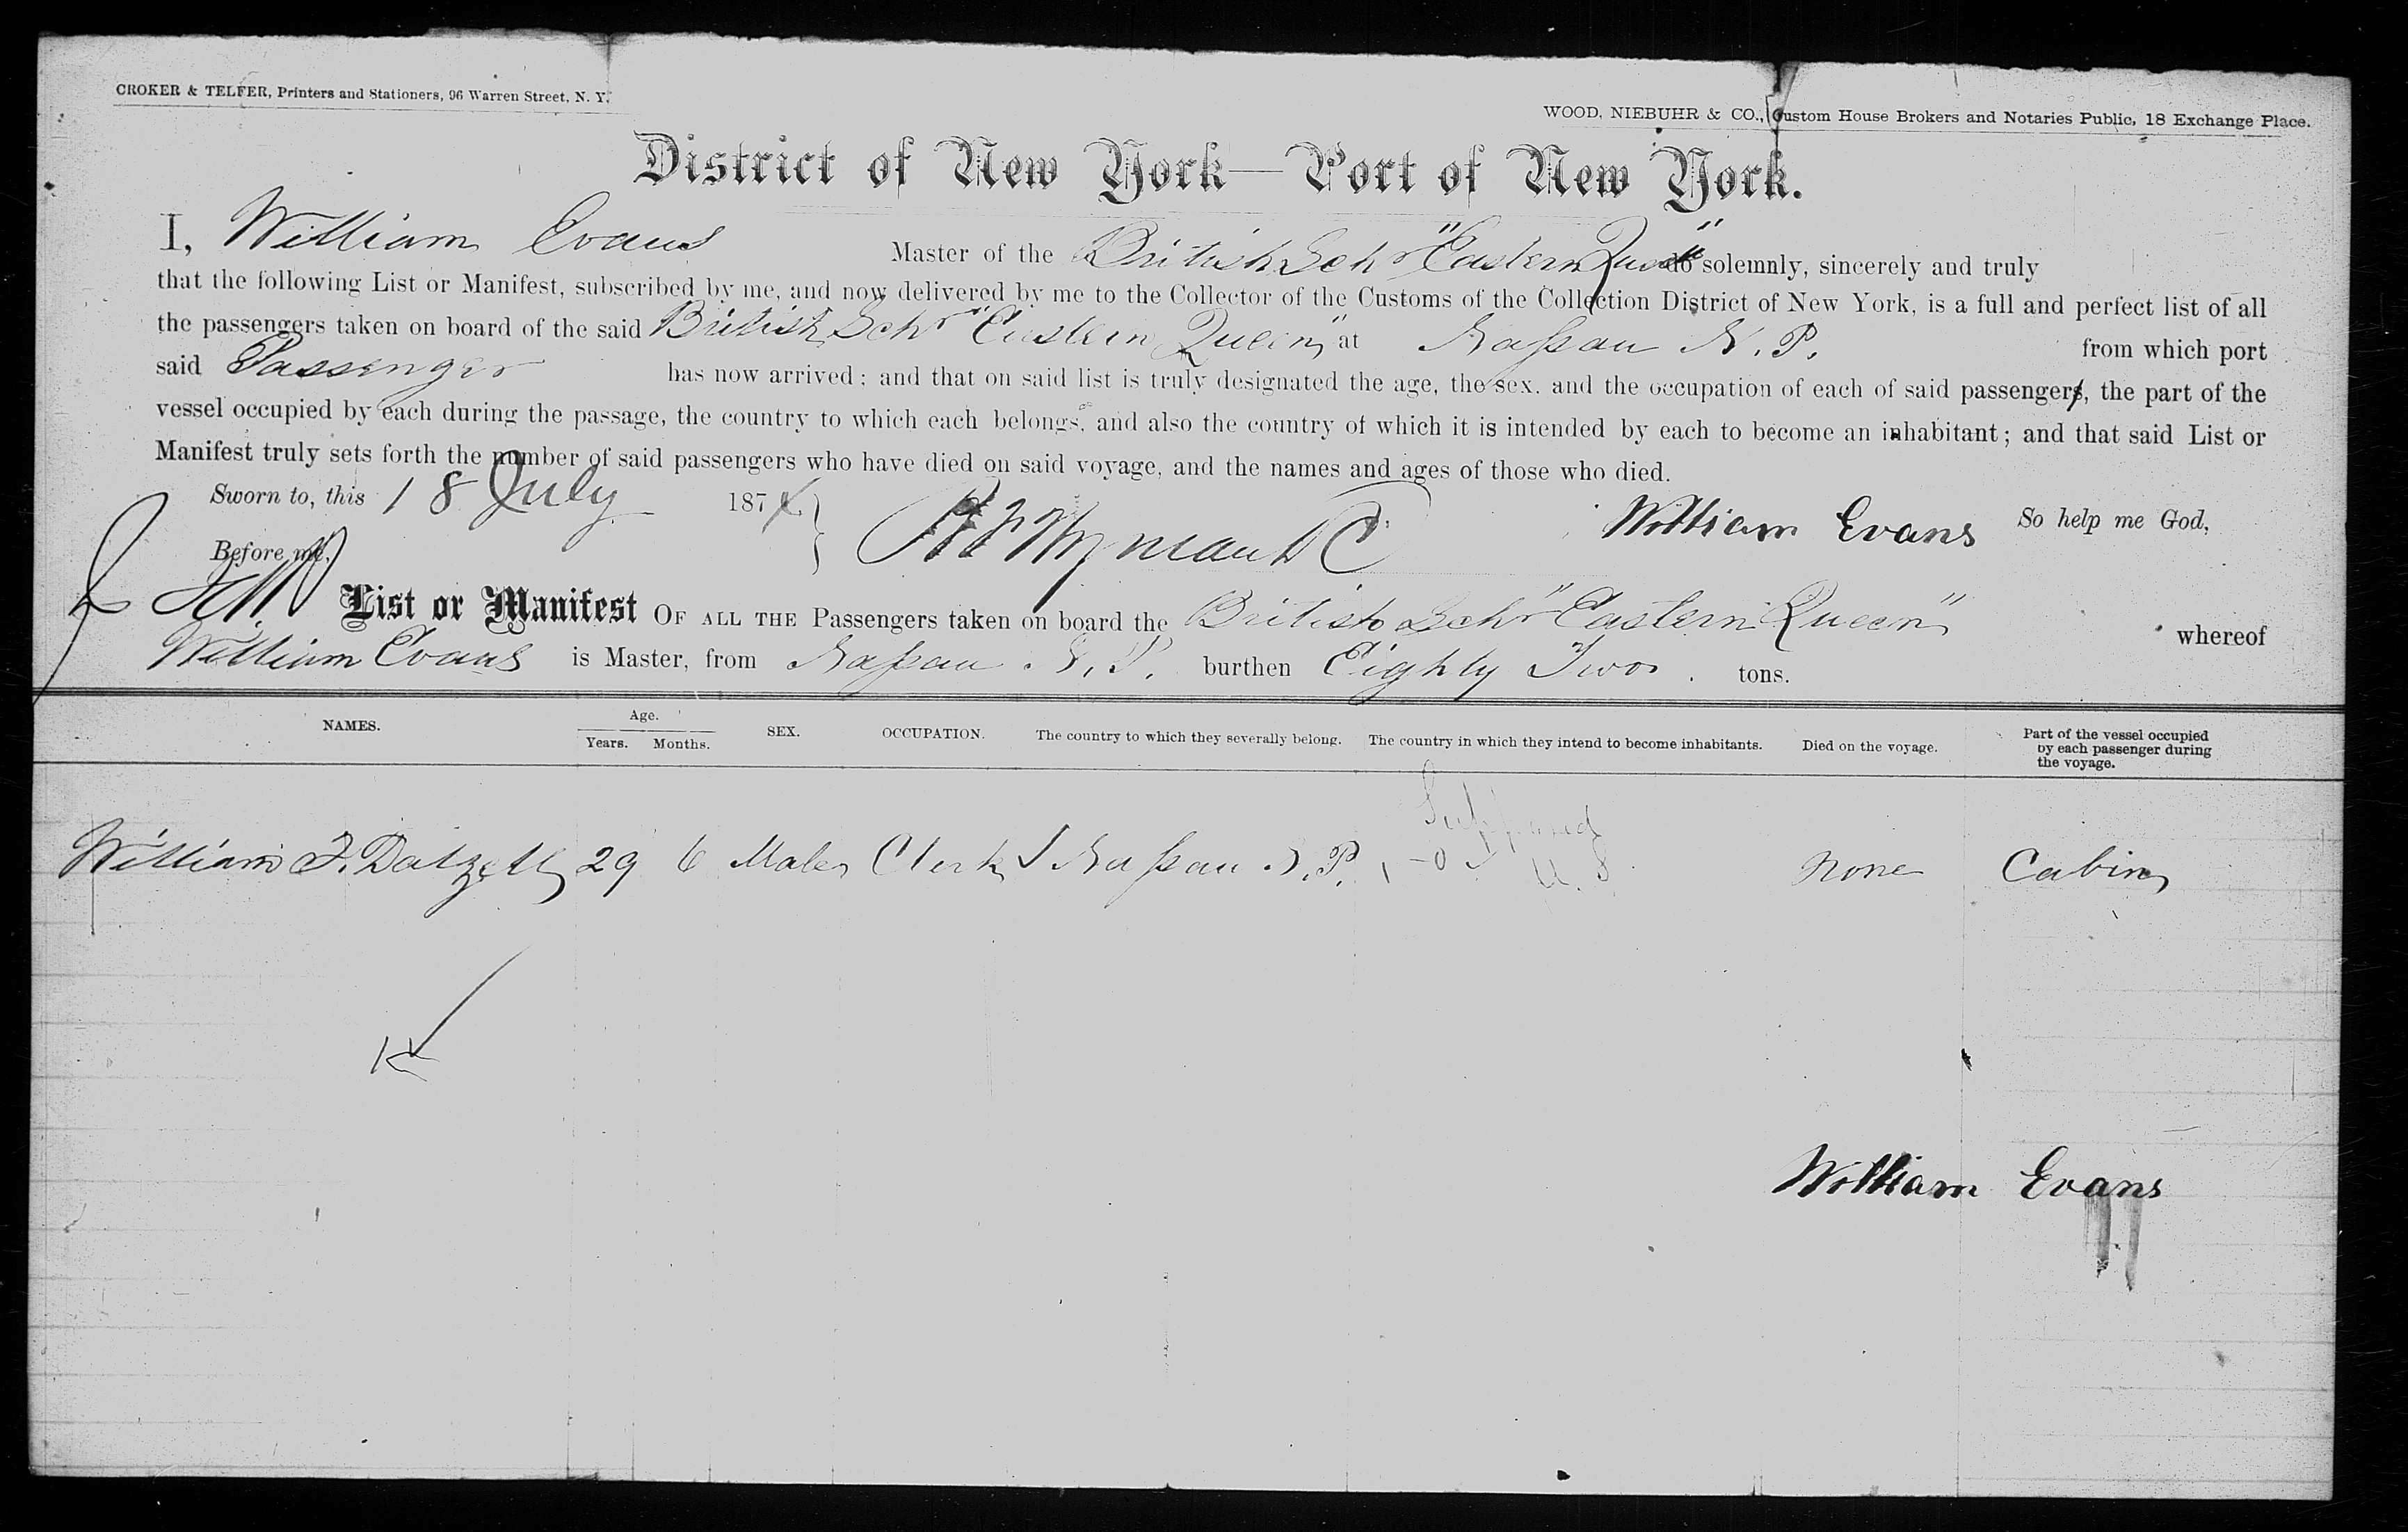 CROKER & TELFER, Printers and Stationers, 96 Warren Street, N. Y.
WOOD, NIEBUHR & CO., Custom House Brokers and Notaries Public, 18 Exchange Place.
District of New York—Port of New York.
I, William Evans Master of the British Schr "Eastern Queen" do solemnly, sincerely and truly
that the following List or Manifest, subscribed by me, and now delivered by me to the Collector of the Customs of the Collection District of New York, is a full and perfect list of all
the passengers taken on board of the said British Schr "Eastern Queen" at Nassau N. P. from which port
said Passenger has now arrived; and that on said list is truly designated the age, the sex, and the occupation of each of said passengers, the part of the
vessel occupied by each during the passage, the country to which each belongs, and also the country of which it is intended by each to become an inhabitant; and that said List or
Manifest truly sets forth the number of said passengers who have died on said voyage, and the names and ages of those who died.
Sworn to, this 18 July 187 William Evans So help me God,
Before me,
List or Manifest OF ALL THE Passengers taken on board the British Schr "Eastern Queen" whereof
William Evans is Master, from Nassau N. P. burthen Eighty Two tons.
NAMES. Age. Years. Months. SEX. OCCUPATION. The country to which they severally belong. The country in which they intend to become inhabitants. Died on the voyage. Part of the vessel occupied by each passenger during the voyage.
William F. Dalzell 29 6 Male Clerk Nassau N. P. U. S. None Cabin
William Evans